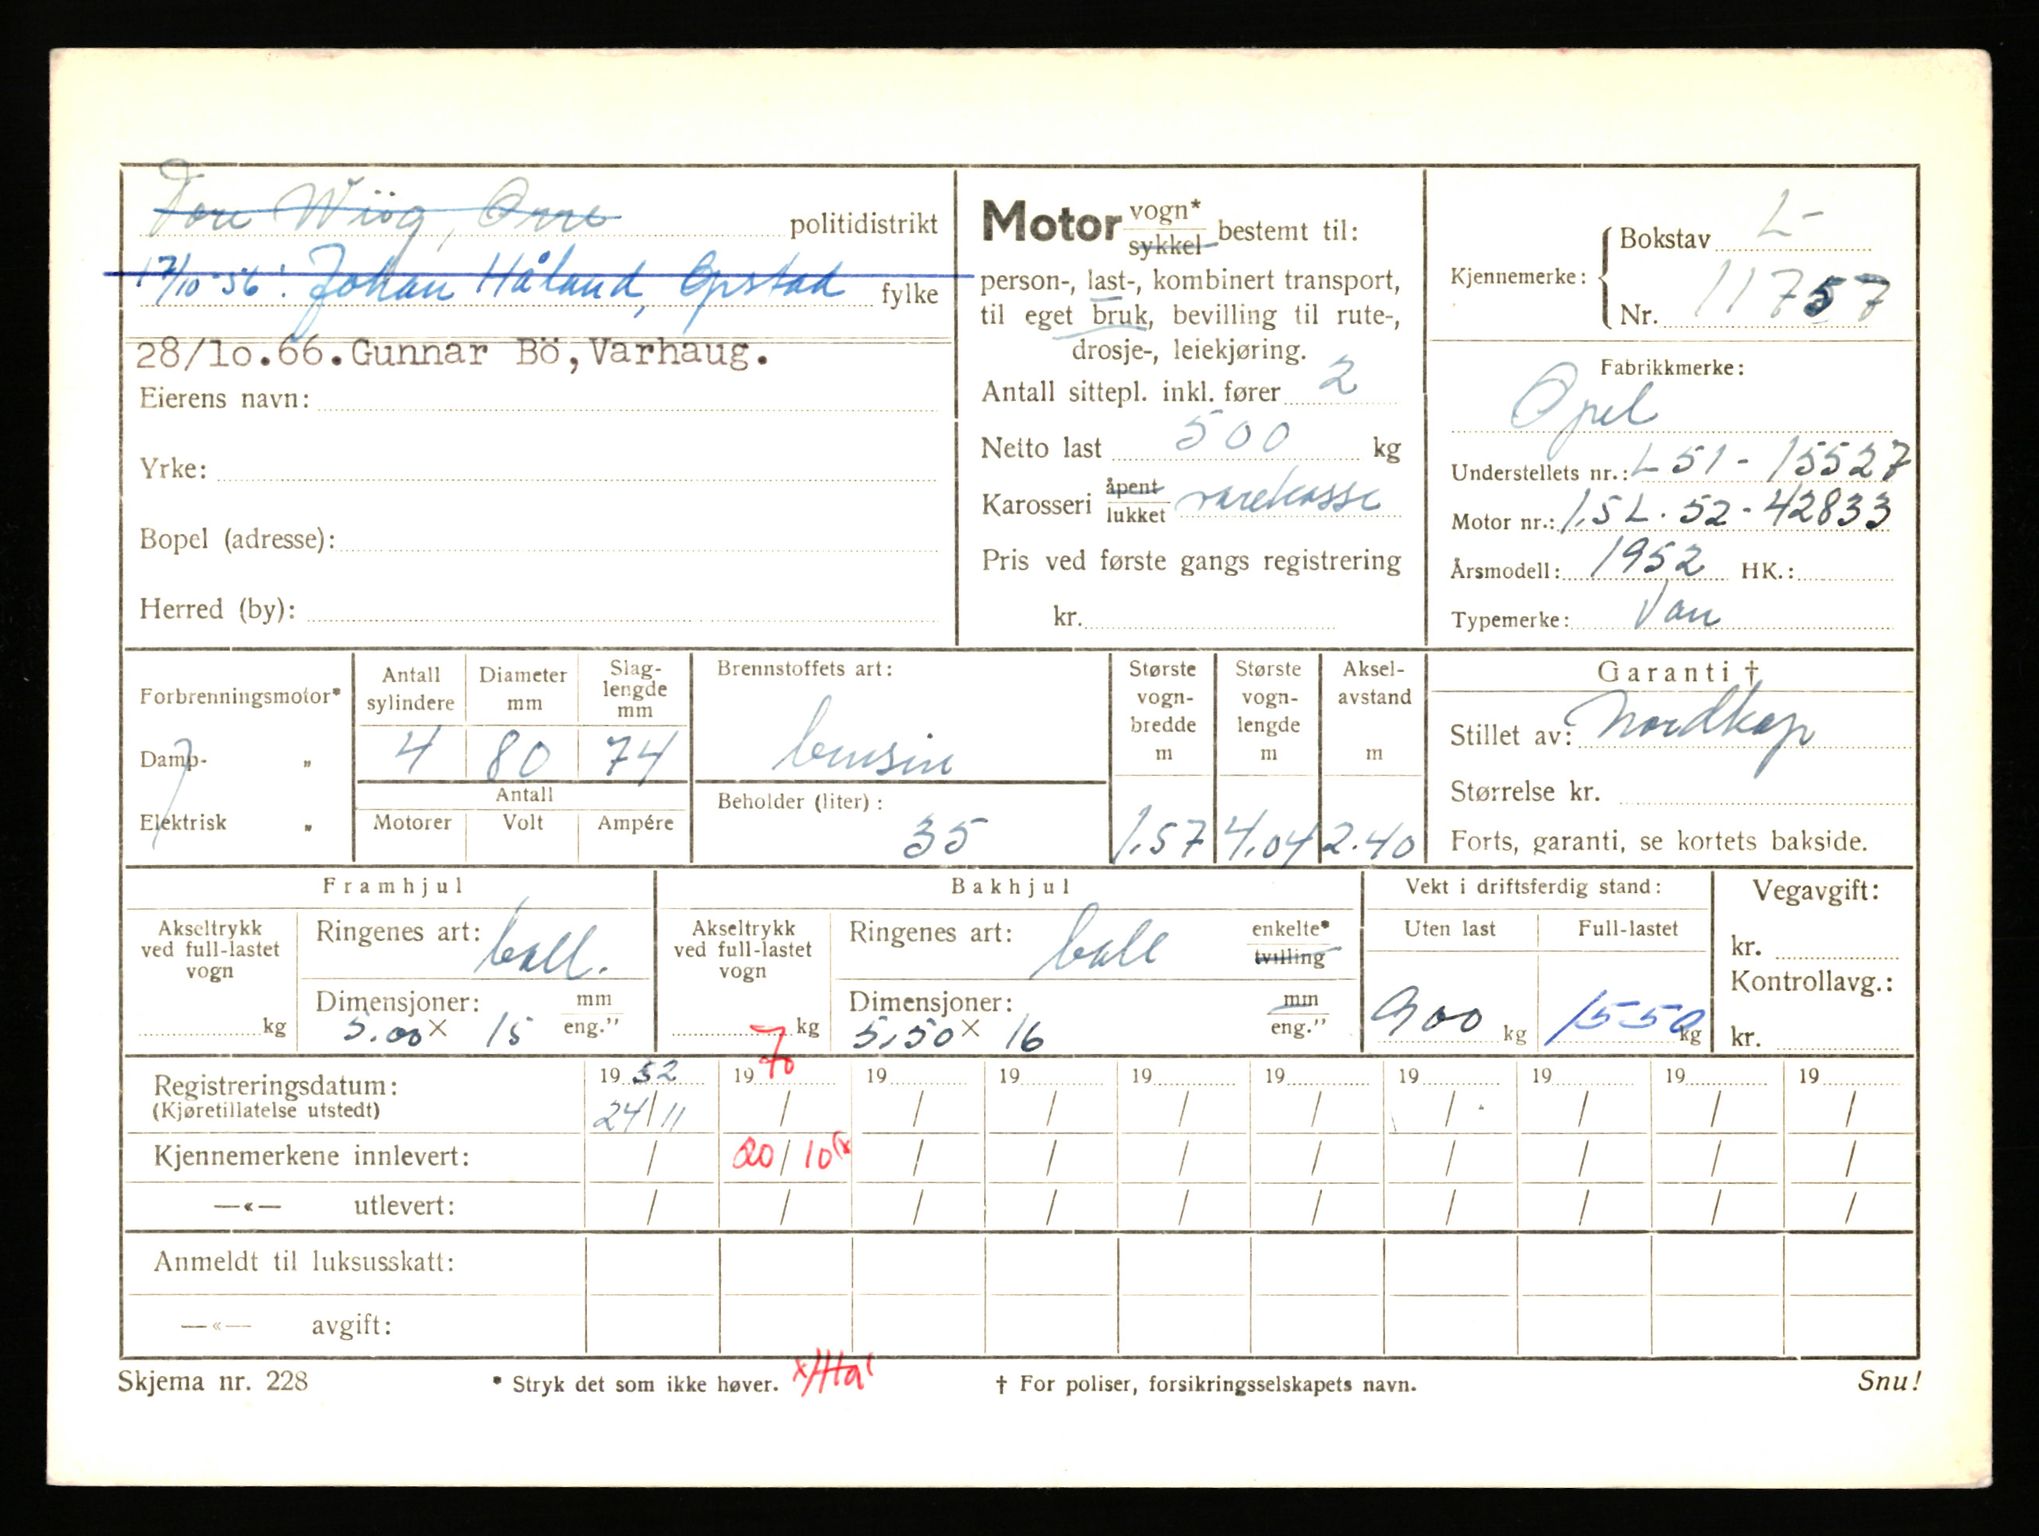 Tore Wiig, Orre politidistrikt
17/10-56: Johan Håland, Opstad fylke
28/10.66.Gunnar Bö, Varhaug.
Eierens navn:
Yrke:
Bopel (adresse):
Herred (by):
Motor vogn* sykkel bestemt til:
person-, last-, kombinert transport,
til eget bruk, bevilling til rute-,
drosje-, leiekjøring.
Antall sittepl. inkl. fører 2
Netto last 500 kg
Karosseri åpent lukket varekasse
Pris ved første gangs registrering
kr.
Kjennemerke: Bokstav L-
Nr. 11757
Fabrikkmerke:
Opel
Understellets nr.: L51-15527
Motor nr.: 1,5L.52-42833
Årsmodell: 1952 HK.:
Typemerke: Van
Forbrenningsmotor*
Damp- "
Elektrisk "
Antall sylindere Diameter mm Slag-lengde mm
4 80 74
Antall
Motorer Volt Ampére
Brennstoffets art:
bensin
Beholder (liter):
35
Største vogn-bredde m 1.57
Største vogn-lengde m 4.04
Aksel-avstand m 2.40
Garanti †
Stillet av: Nordkap
Størrelse kr.
Forts, garanti, se kortets bakside.
Framhjul
Akseltrykk ved full-lastet vogn
kg
Ringenes art: ball.
Dimensjoner: mm
5.00 x 15 eng."
Bakhjul
Akseltrykk ved full-lastet vogn
kg
Ringenes art: ball enkelte* tvilling
Dimensjoner: mm
5,50 x 16 eng."
Vekt i driftsferdig stand:
Uten last Full-lastet
900 kg 1550 kg
Vegavgift:
kr.
Kontrollavg.:
kr.
Registreringsdatum: 1952 1970 19 19 19 19 19 19 19 19
(Kjøretillatelse utstedt) 24/11 / / / / / / / / /
Kjennemerkene innlevert: / 20/10 x / / / / / / / /
—«— utlevert: / / / / / / / / / /
Anmeldt til luksusskatt:
—«— avgift:
Skjema nr. 228 * Stryk det som ikke høver. x/Ha † For poliser, forsikringsselskapets navn. Snu!